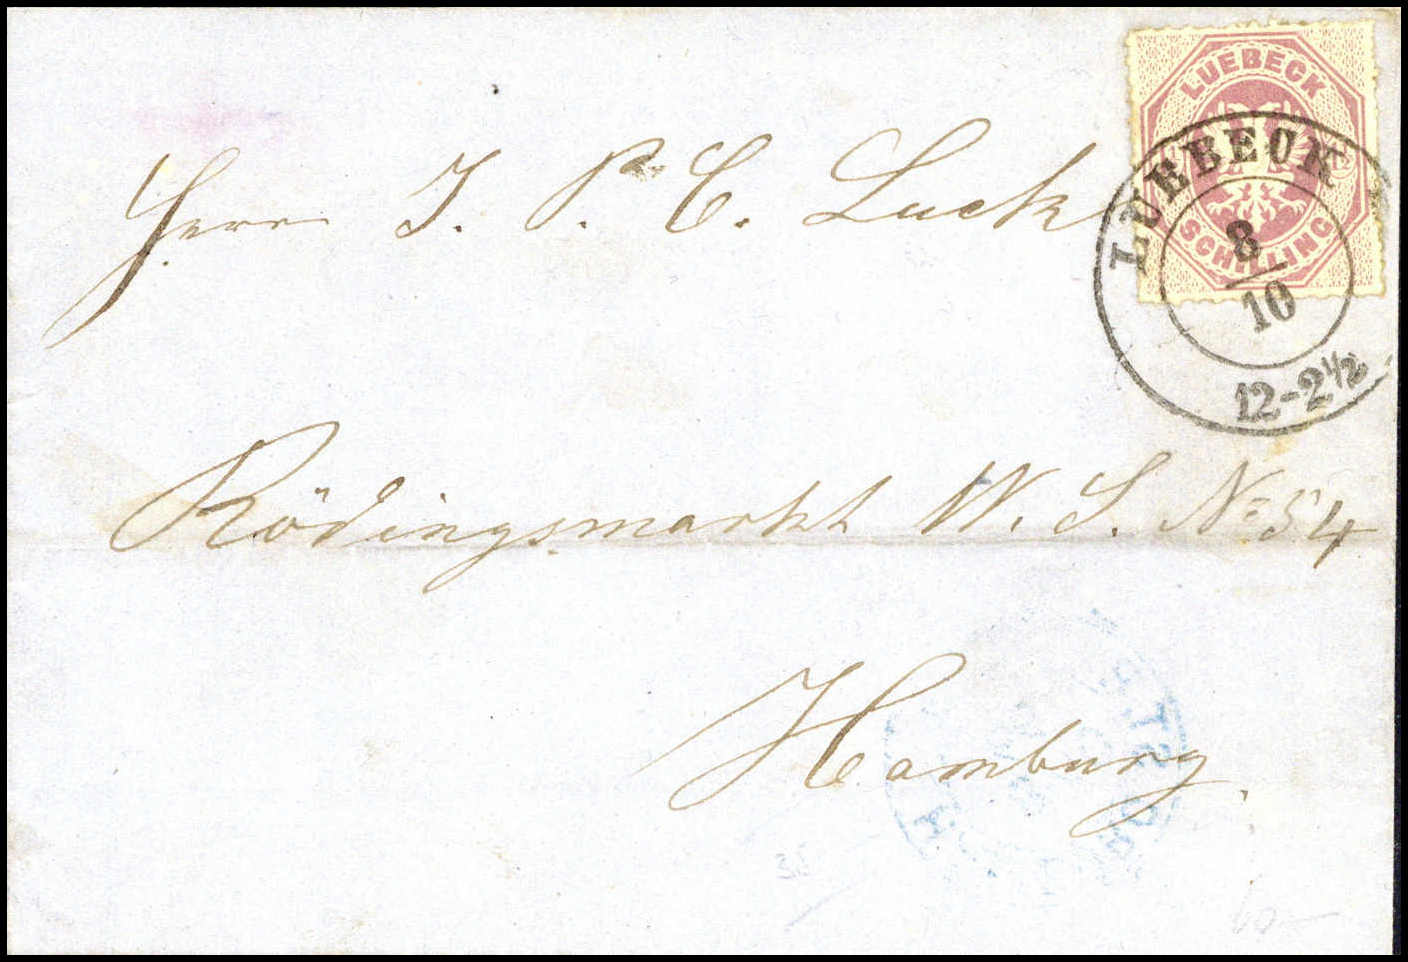 LUEBECK
SCHILLING
LUEBECK
8
10
12-2½
Herrn J. P. C. Luck
Rödingsmarkt W. S. No 54
Hamburg.